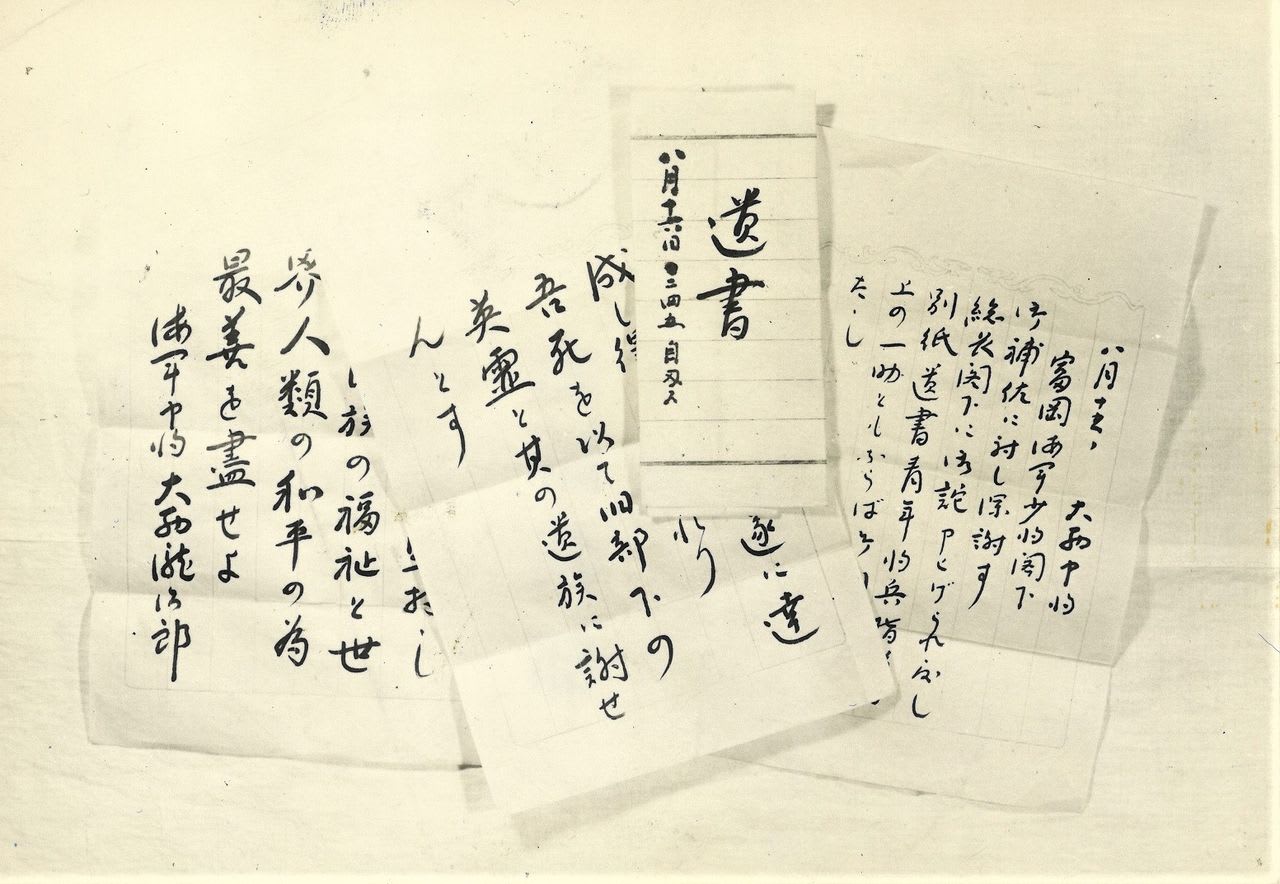 八月十五日
大西中将
富岡海軍少将閣下
御補佐に対し深謝す
総長閣下に御詫申上げられ度し
別紙遺書青年将兵指
上の一助ともならば
たし
遺書
八月十六日〇二四五自刃ス
遂に達
成し得
れり
吾死を以て旧部下の
英霊と其の遺族に謝せ
んとす
族の福祉と世
界人類の和平の為
最善を盡せよ
海軍中将大西瀧治郎